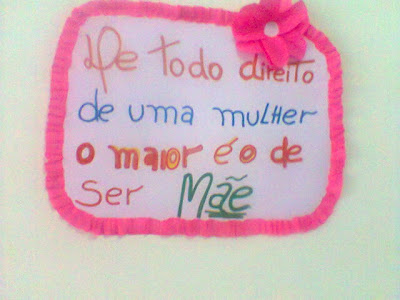 De todo direito
de uma mulher
o maior é o de
ser Mãe